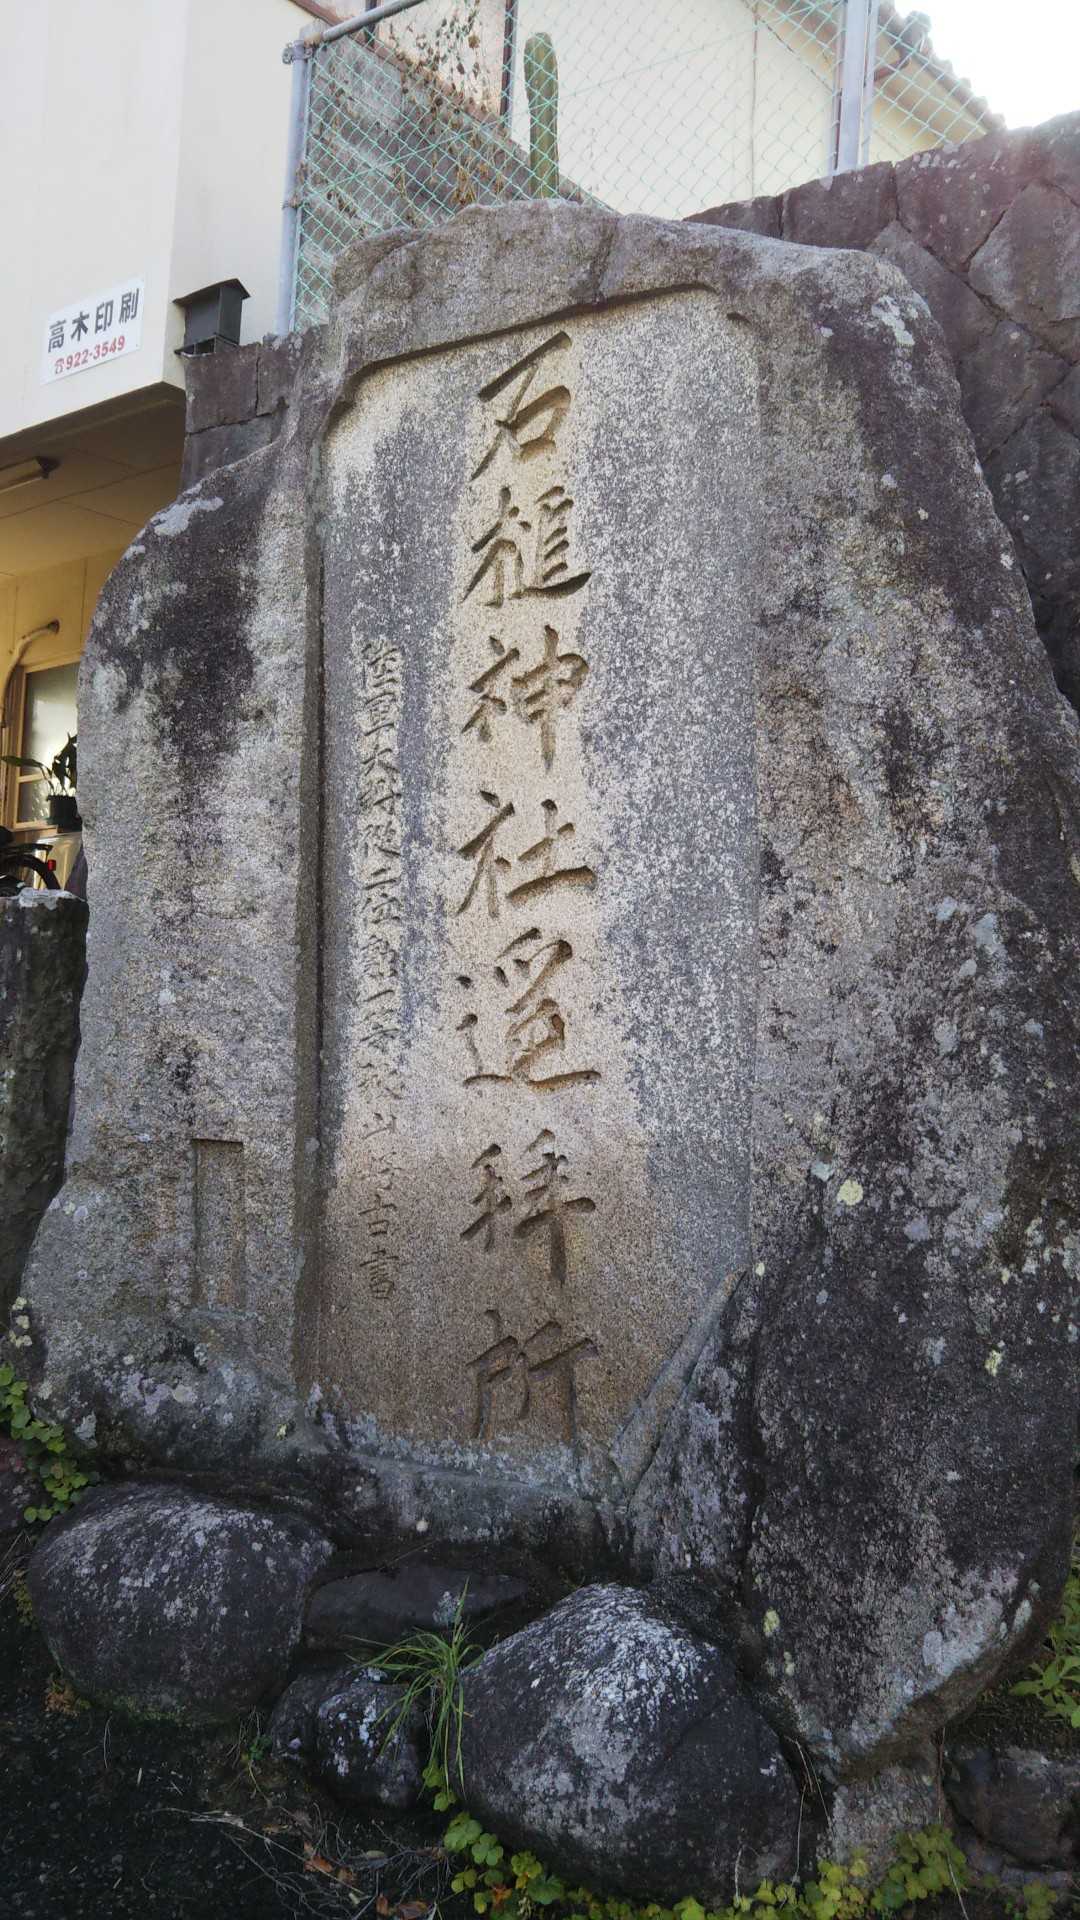 石槌神社遥拝所
陸軍大将従二位勲一等秋山好古書
高木印刷
☎922-3549